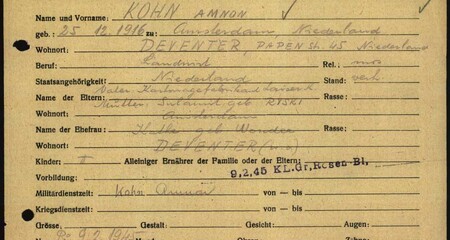 Name und Vorname: KOHN AMNON
geb.: 25 12. 1916 zu: Amsterdam, Niederland
Wohnort: DEVENTER, PAPEN St. 45 Niederland
Beruf: Landwirt Rel.: mos
Staatsangehörigkeit: Niederland Stand: verh.
Name der Eltern: Vater Rasse:
Mutter: Sulamit geb RYSKI
Wohnort: Amsterdam
Name der Ehefrau: geb Rasse:
Wohnort: DEVENTER
Kinder: II Alleiniger Ernährer der Familie oder der Eltern:
9.2.45 KL.Gr.Rosen-Bl.
Vorbildung:
Militärdienstzeit: Kohn von — bis
Kriegsdienstzeit: von — bis
Grösse: Gestalt: Gesicht: Augen:
9.2.1945